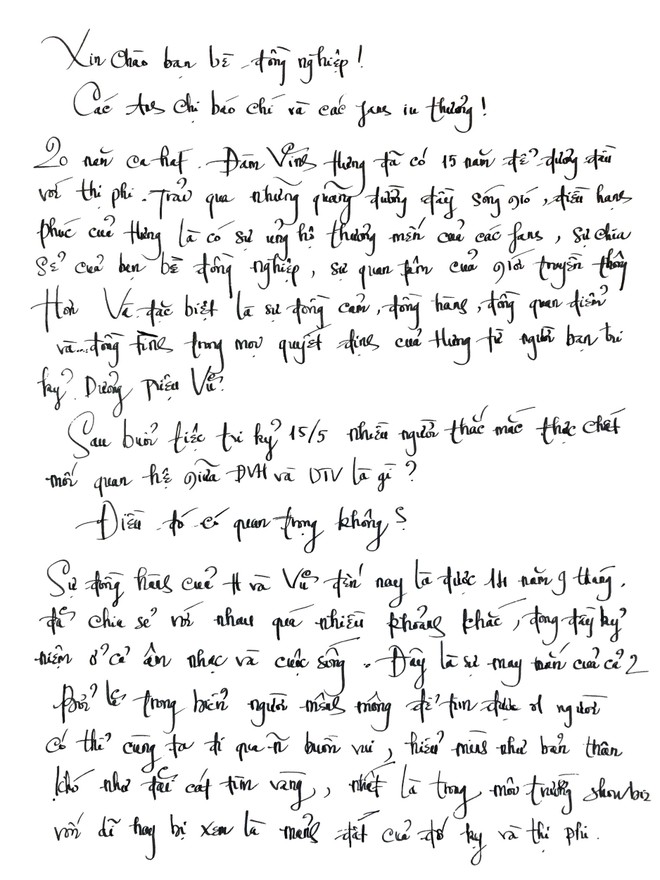 Xin chào bạn bè đồng nghiệp!
Các Anh chị báo chí và các fans iu thương!
20 năm ca hát. Đàm Vĩnh Hưng đã có 15 năm để đương đầu
với thị phi. Trải qua những quãng đường đầy sóng gió, điều hạnh
phúc của Hưng là có sự ủng hộ thương mến của các fans, sự chia
sẻ của bạn bè đồng nghiệp, sự quan tâm của giới truyền thông
Hơn Và đặc biệt là sự đồng cảm, đồng hành, đồng quan điểm
và... đồng tình trong mọi quyết định của Hưng từ người bạn tri
kỷ? Dương Triệu Vũ.
Sau buổi tiệc tri kỷ 15/5 nhiều người thắc mắc thực chất
mối quan hệ giữa ĐVH và DTV là gì?
Điều đó có quan trọng không?
Sự đồng hành của H và Vũ đến nay là được 14 năm 9 tháng.
đã chia sẻ với nhau quá nhiều khoảng khắc, đong đầy kỷ
niệm ở cả âm nhạc và cuộc sống. Đây là sự may mắn của cả 2
Bởi lẽ trong biển người mênh mông để tìm được 01 người
có thể cùng ta đi qua n~ buồn vui, hiểu mình như bản thân
khó như đãi cát tìm vàng, nhất là trong môi trường showbiz
vốn dĩ hay bị xem là mảnh đất của đố kỵ và thị phi.